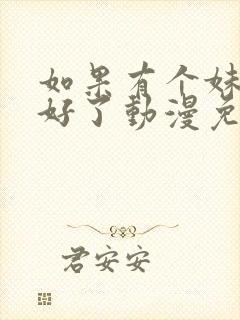 如果有个妹
好了動漫免
君安安